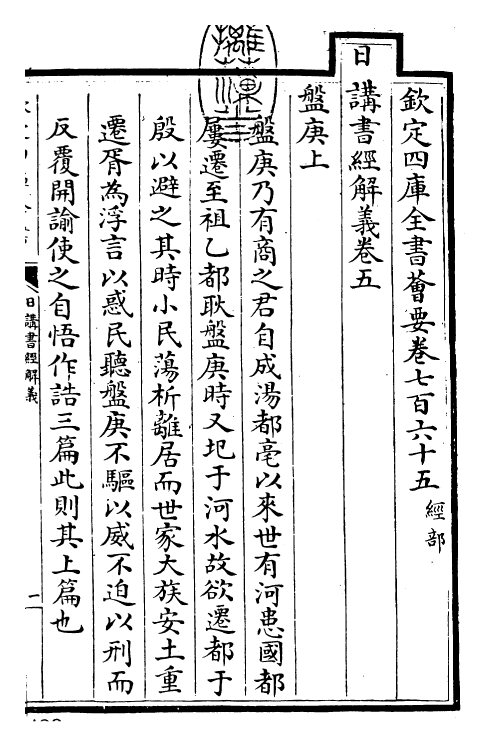 欽定四庫全書薈要卷七百六十五 經部
日講書經解義卷五
盤庚上
盤庚乃有商之君自成湯都亳以來世有河患國都
屢遷至祖乙都耿盤庚時又圮于河水故欲遷都于
殷以避之其時小民蕩析離居而世家大族安土重
遷胥為浮言以惑民聽盤庚不驅以威不迫以刑而
反覆開諭使之自悟作誥三篇此則其上篇也
日講書經解義
一